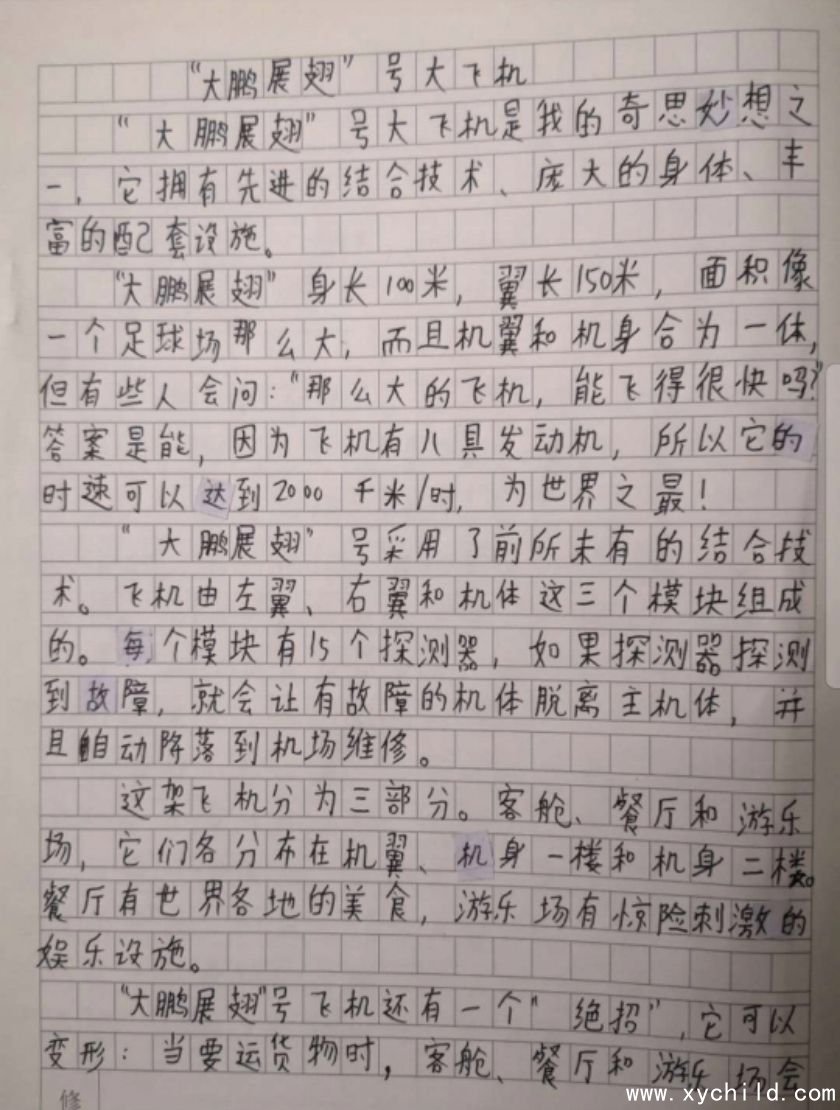 “大鹏展翅”号大飞机
“大鹏展翅”号大飞机是我的奇思妙想之
一，它拥有先进的结合技术、庞大的身体、丰
富的配套设施。
“大鹏展翅”身长100米，翼长150米，面积像
一个足球场那么大，而且机翼和机身合为一体，
但有些人会问：“那么大的飞机，能飞得很快吗？”
答案是能，因为飞机有八具发动机，所以它的
时速可以达到2000千米/时，为世界之最！
“大鹏展翅”号采用了前所未有的结合技
术。飞机由左翼、右翼和机体这三个模块组成
的。每个模块有15个探测器，如果探测器探测
到故障，就会让有故障的机体脱离主机体，并
且自动降落到机场维修。
这架飞机分为三部分。客舱、餐厅和游乐
场，它们各分布在机翼、机身一楼和机身二楼。
餐厅有世界各地的美食，游乐场有惊险刺激的
娱乐设施。
“大鹏展翅”号飞机还有一个“绝招”，它可以
变形：当要运货物时，客舱、餐厅和游乐场会
修
www.xychild.com